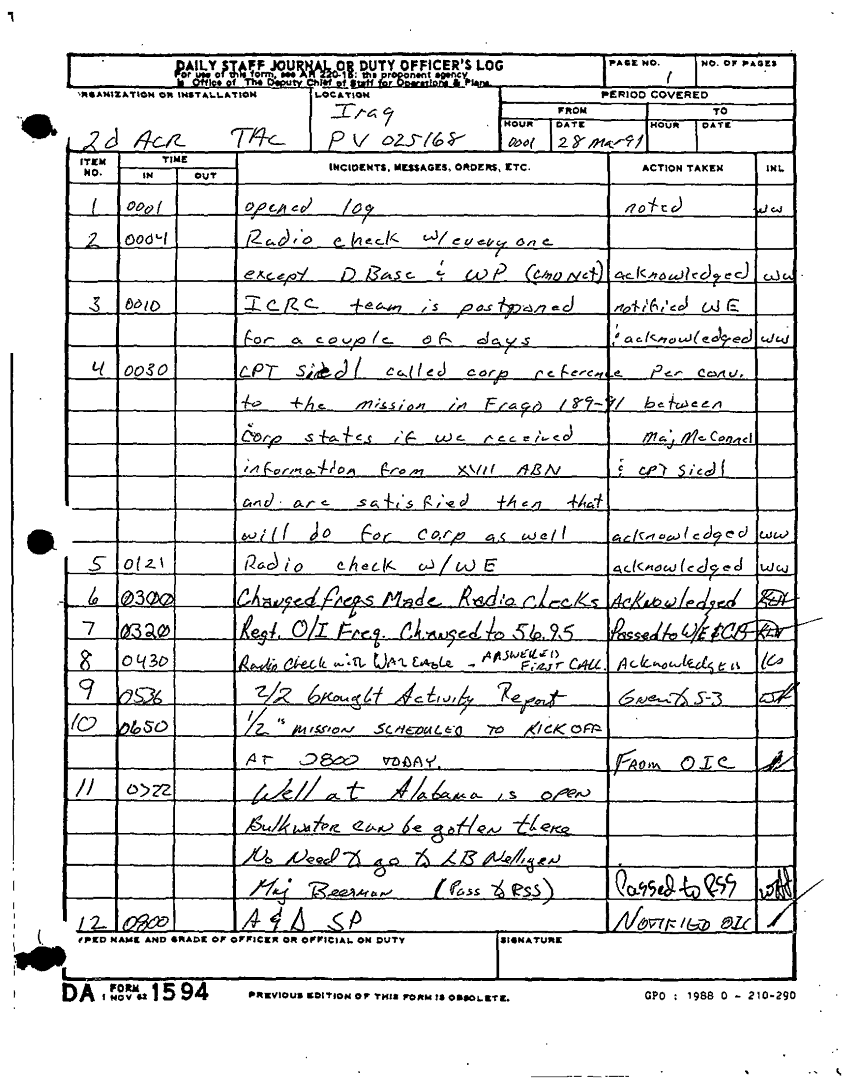 DAILY STAFF JOURNAL OR DUTY OFFICER'S LOG
For use of this form, see AR 220-15; the proponent agency
is Office of The Deputy Chief of Staff for Operations & Plans.
PAGE NO.
1
NO. OF PAGES
ORGANIZATION OR INSTALLATION
2d ACR TAC
LOCATION
Iraq
PV 025168
PERIOD COVERED
FROM
TO
HOUR
0001
DATE
28 Mar 91
HOUR
DATE
ITEM NO.
TIME
IN
OUT
INCIDENTS, MESSAGES, ORDERS, ETC.
ACTION TAKEN
INL
1 0001 opened log noted ww
2 0004 Radio check w/everyone
except D Base & WP (CMD Net) acknowledged ww
3 0010 ICRC team is postponed notified WE
for a couple of days & acknowledged ww
4 0030 CPT Siedl called corp reference Per conv.
to the mission in Frago 189-91 between
Corp states if we received Maj McConnel
information from XVIII ABN & CPT Siedl
and are satisfied then that
will do for corp as well acknowledged ww
5 0121 Radio check w/WE acknowledged ww
6 0300 Changed freqs Made Radio checks Acknowledged
7 0320 Regt. O/I Freq. Changed to 56.95 Passed to WE &
8 0430 Radio Check with WAR Eagle - ANSWERED FIRST CALL. Acknowledged
9 0536 2/2 brought Activity Report Given to S-3
10 0650 1/2 "MISSION SCHEDULED TO KICK OFF
AT 0800 TODAY. FROM OIC
11 0722 Well at Alabama is open
Bulkwater can be gotten there
No Need to go to LB Nelligen
Maj Beerman (Pass to RSS) Passed to RSS
12 0800 A & D SP NOTIFIED OIC
TYPED NAME AND GRADE OF OFFICER OR OFFICIAL ON DUTY
SIGNATURE
DA FORM 1 NOV 62 1594
PREVIOUS EDITION OF THIS FORM IS OBSOLETE.
GPO : 1988 O - 210-290